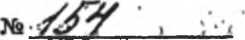 № 154